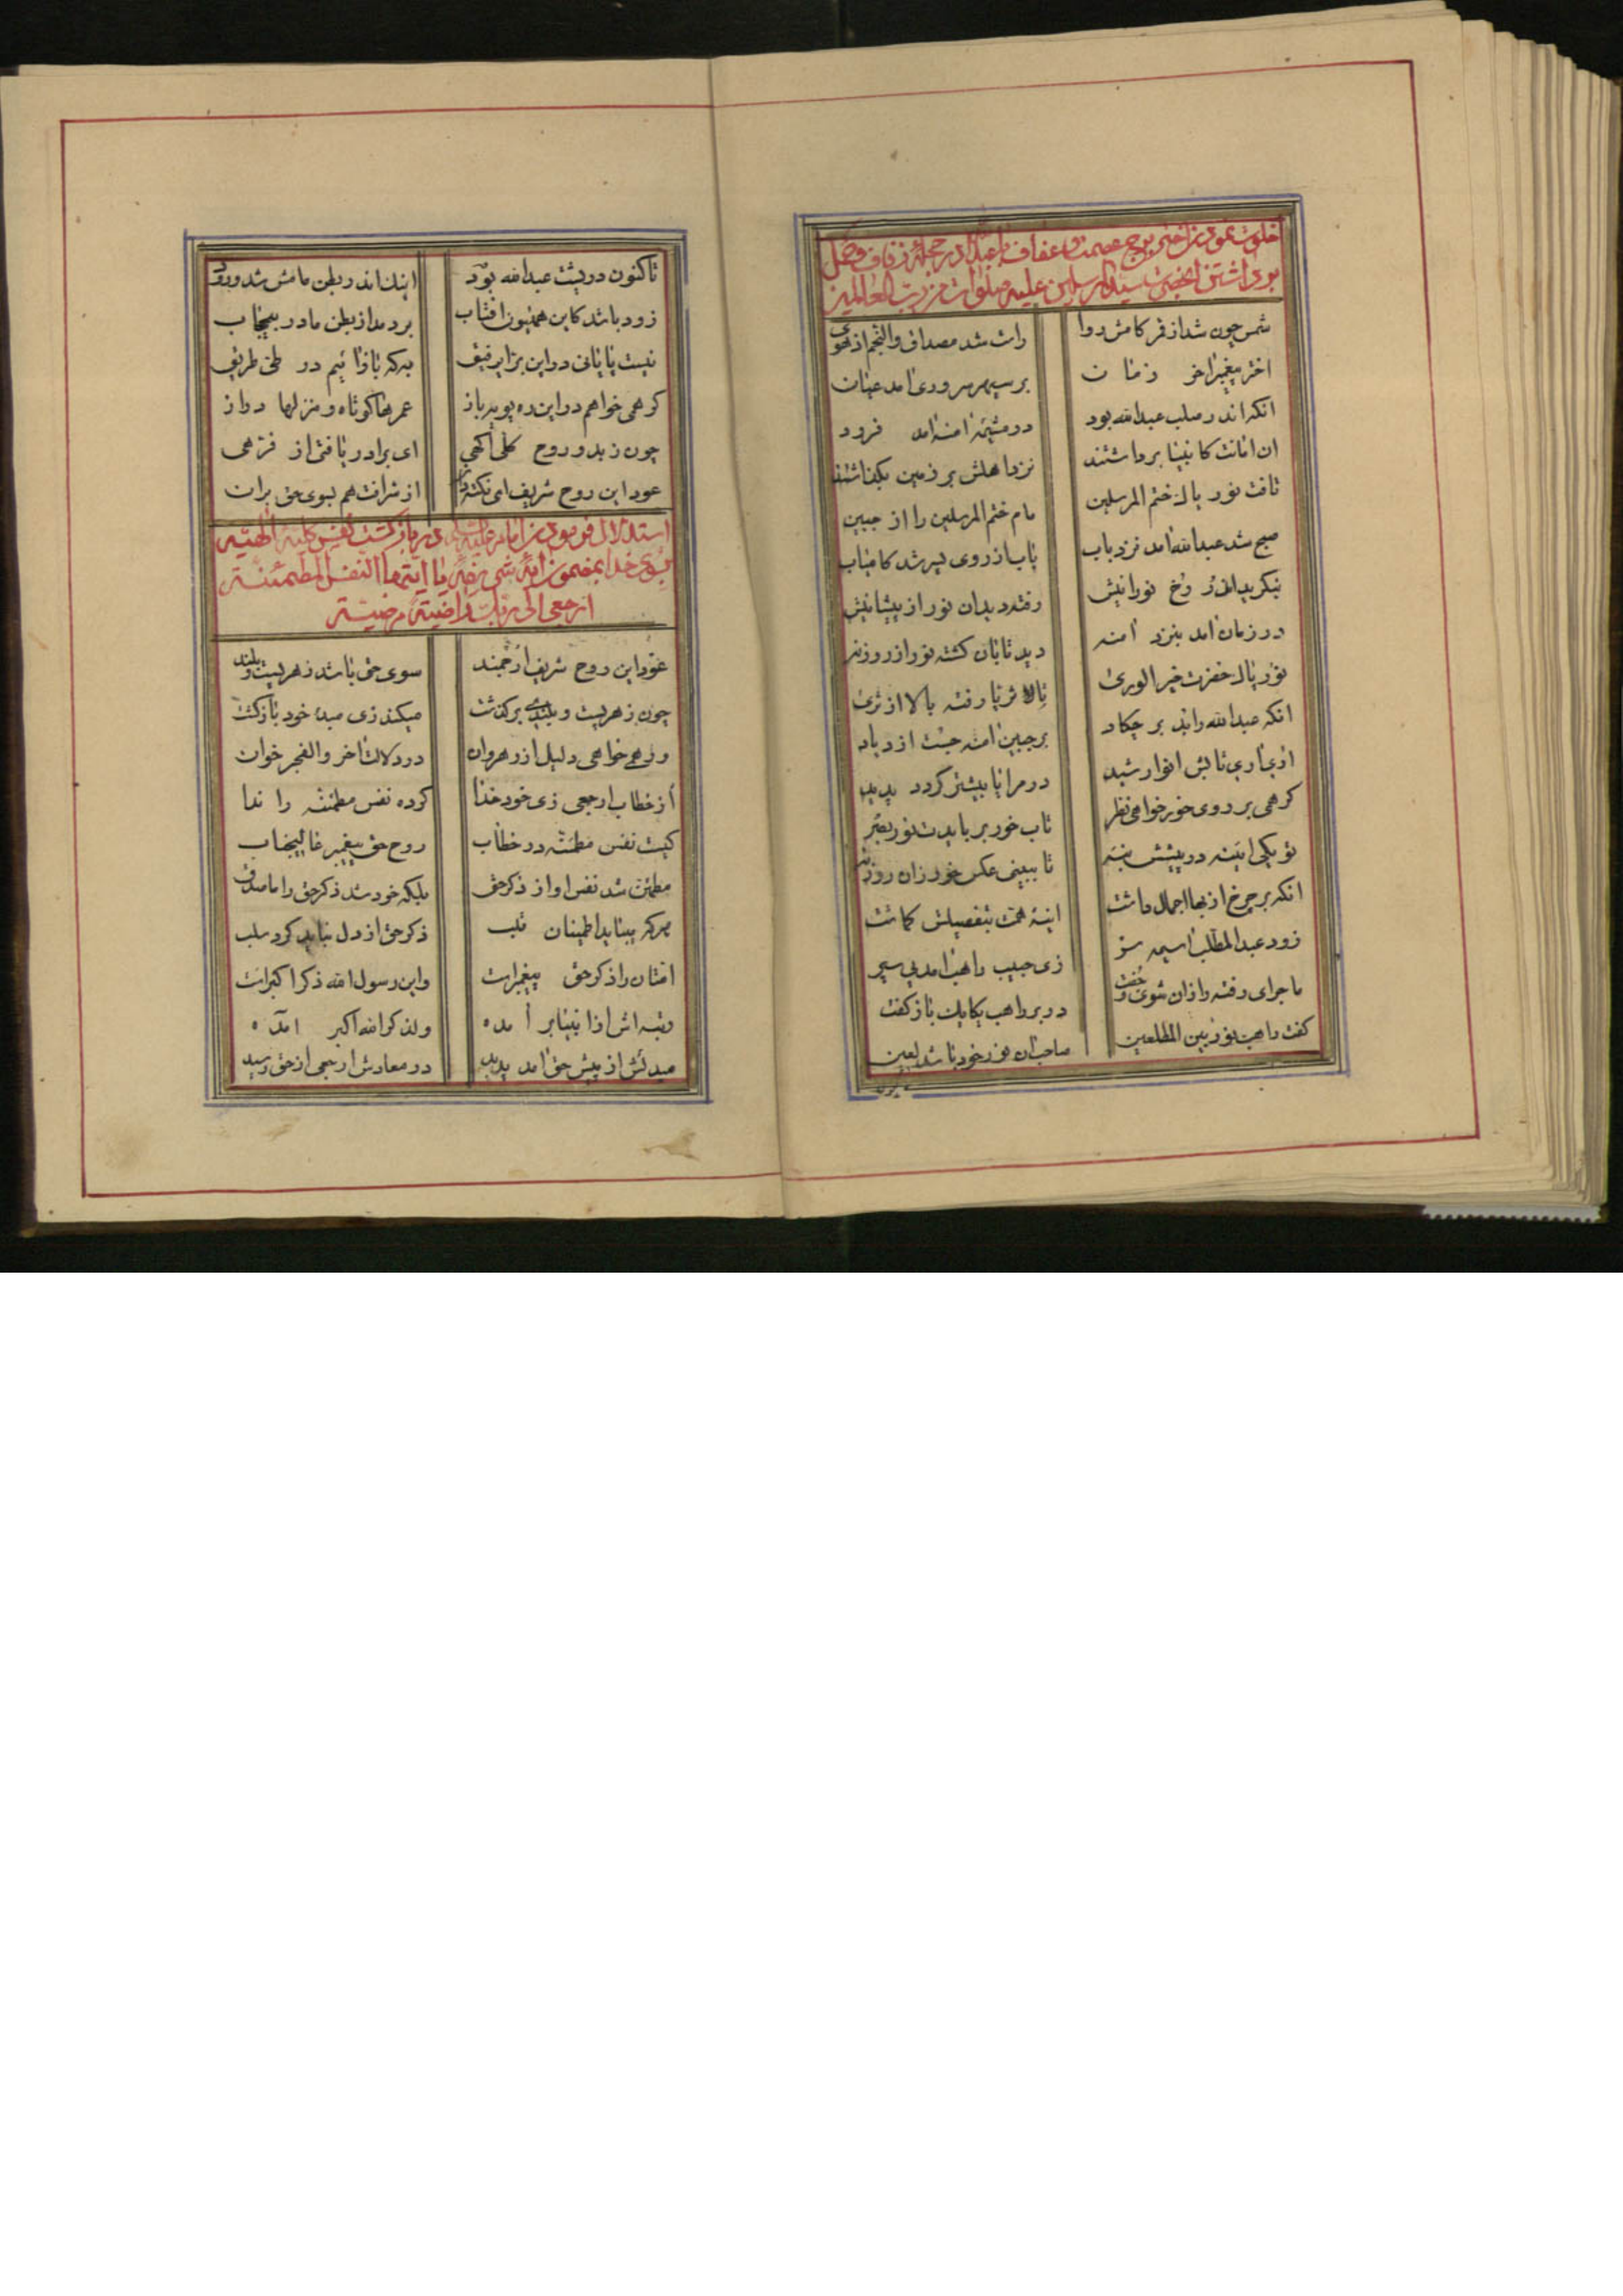 خلوت نمودن اختر برج عصمت و عفاف با عبدالله در حجله زفاف و حمل
برداشتن انحضرت بسید المرسلین علیه صلوات من رب العالمین
شمس چون شد از قمر کامش روا راست شد مصداق والنجم اذ هوی
اختر پیغمبر اخر زمان بر سپهر سروری امد عیان
انکه اندر صلب عبدالله بود در امنه امد فرود
ان امانت کانبیا برداشتند نزد اهلش بر زمین بگذاشتند
تافت نور پاک ختم المرسلین مام ختم المرسلین را از جبین
صبح شد عبدالله امد نزد باب باب از روی پسر شد کامیاب
بنگرید اندر رخ نورانیش رفته دید ان نور از پیشانیش
در زمان امد بنزد امنه دید تابان کشته نور از روزنه
نور پاک حضرت خیر الوری تا ثریا رفته بالا از ثری
انکه عبدالله را بد بر چکاد بر جبین امنه جست ازدیاد
اری اری تابش انوار شید در مرایا بیشتر گردد پدید
گر همی بر روی خور خواهی نظر تاب خور برباید ت نور بصر
تو یکی اینه در پیشش بنه تا ببینی عکس خور زان روزنه
انکه بر چرخ از بها اجمال داشت اینه همت بتفصیلش کماشت
زود عبدالمطلب اسیمه سر زی حبیب راهب امد پی سپر
ماجرای رفته را زان شوی و جفت در بر راهب یکایک باز گفت
گفت راهب نور بین المطلعین صاحب ان نور خود باشد بعین
تاکنون در پشت عبدالله بود اینک اندر بطن مامش شد ورود
زود باشد کاین همایون افتاب بردمد از بطن مادر بیحجاب
نیست پایانی در این بزا رفیق به که باز ائیم در طی طریق
گر همی خواهم در این ره پوید باز عمرها کوتاه و منزلها دراز
چون ز بدو روح کلی اگهی ای برادر یافتی از فرهی
عود این روح شریف ای نکته دان از شرافت هم بسوی حق بران
استدلال فرمودن امام علیه السلام در باز گشت نفس کلیه الهیه
بسوی خدا بمضمون ایه شریفه یا ایتها النفس المطمئنه
ارجعی الی ربک راضیه مرضیه
عود این روح شریف ارجمند سوی حق باشد ز هر پست و بلند
چون ز هر پست و بلندی برگذشت میکند زی مبدء خود بازگشت
ور همی خواهی دلیل از رهروان در دلالت اخر والفجر خوان
از خطاب ارجعی زی خود خدا کرده نفس مطمئنه را ندا
کیست نفس مطمئنه در خطاب روح حق پیغمبر عالیجناب
مطمئن شد نفس او از ذکر حق بلکه خود شد ذکر حق را ماصدق
هر که بنیاید اطمینان قلب ذکر حق از دل نباید کرد سلب
امتان را ذکر حق پیغمبر است واین رسول الله ذکر اکبر است
رتبه اش از انبیا بر امده ولذکر الله اکبر امده
مبدئش از پیش حق امد پدید در معادش ارجعی از حق رسید